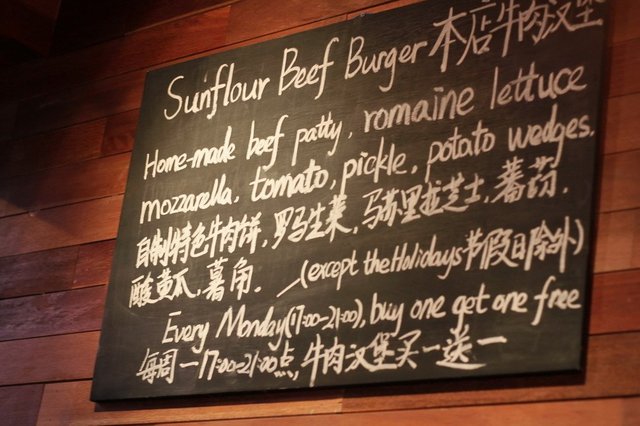 Sunflour Beef Burger 本店牛肉汉堡
Home-made beef patty, romaine lettuce
mozzarella, tomato, pickle, potato wedges.
自制特色牛肉饼, 罗马生菜, 马苏里拉芝士, 蕃茄,
酸黄瓜, 薯角. (except the Holidays 节假日除外)
Every Monday (17:00-21:00), buy one get one free
每周一 17:00-21:00点, 牛肉汉堡买一送一